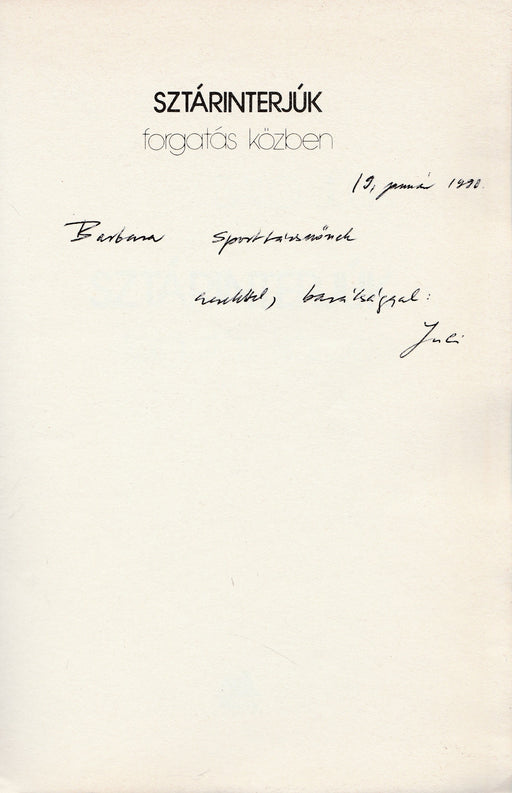 SZTÁRINTERJÚK
forgatás közben
19, január 1990.
Barbara Sporttársnőnek
szeretettel, barátsággal:
Juli